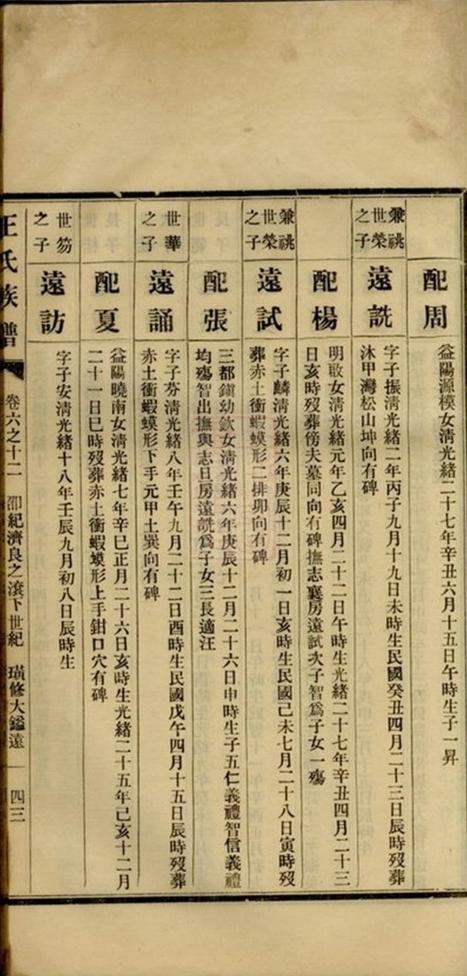 配周
益陽源模女淸光緒二十七年辛丑六月十五日午時生子一昇
兼祧
世榮
之子
遠詵
字子振淸光緒二年丙子九月十九日未時生民國癸丑四月二十三日辰時歿葬
沐甲灣松山坤向有碑
配楊
明敢女淸光緒元年乙亥四月二十二日午時生光緒二十七年辛丑四月二十三
日亥時歿葬傍夫墓同向有碑撫志襄房遠試次子智爲子女一殤
兼祧
世榮
之子
遠試
字子麟淸光緒六年庚辰十二月初一日亥時生民國己未七月二十八日寅時歿
葬赤土衝蝦蟆形二排卯向有碑
配張
三都鎭幼欽女淸光緒六年庚辰十二月二十六日申時生子五仁義禮智信義禮
均殤智出撫與志日房遠詵爲子女三長適汪
世華
之子
遠誦
字子芬淸光緒八年壬午九月二十二日酉時生民國戊午四月十五日辰時歿葬
赤土衝蝦蟆形下手元甲土巽向有碑
配夏
益陽曉南女淸光緒七年辛巳正月二十六日亥時生光緒二十五年己亥十二月
二十一日巳時歿葬赤土衝蝦蟆形上手鉗口穴有碑
世笏
之子
遠訪
字子安淸光緒十八年壬辰九月初八日辰時生
王氏族譜
卷六之十二
卲紀濟良之滾下世紀
璜修大鎰遠
四三